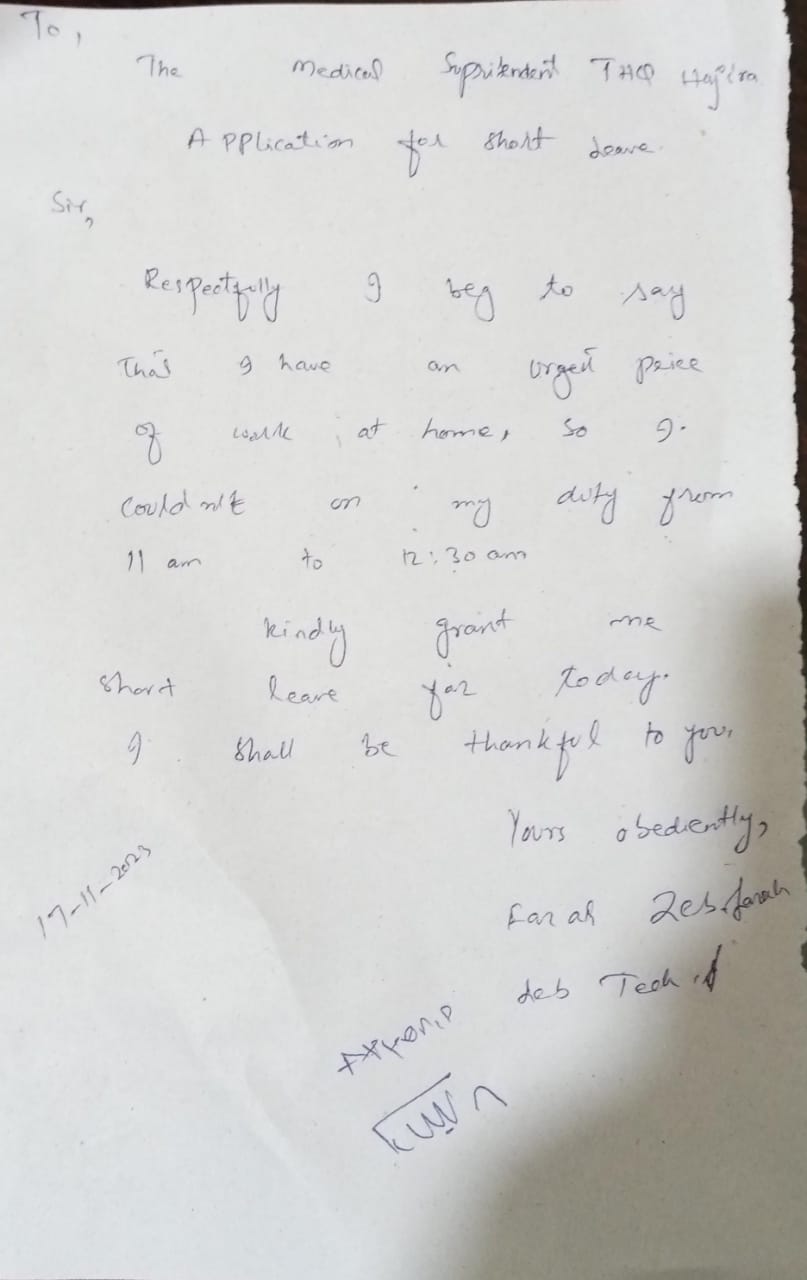 To,
The Medical Supritendent THQ Hajira
Application for short leave.
Sir,
Respectfully I beg to say
That I have an urgent peice
of work at home, so I
could nt on my duty from
11 am to 12:30 am
kindly grant me
short leave for today.
I shall be thankful to you,
Yours obediently,
Farah Zeb. Farah
Lab Tech.
17-11-2023